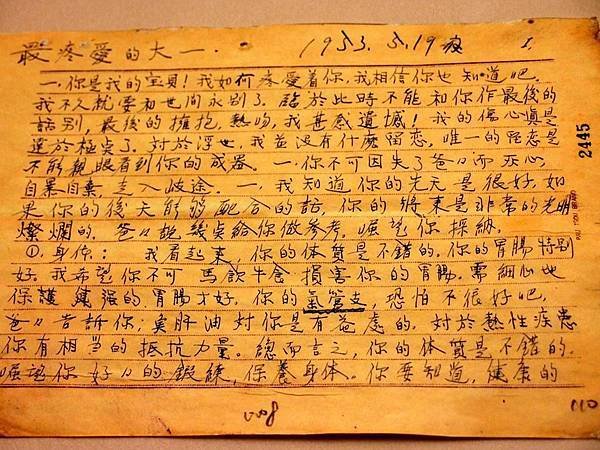 最疼愛的大一. 1953.5.19夜 1.
一、你是我的宝貝！我如何疼愛着你，我相信你也知道吧。
我不久就要和世间永別了。詺於此時不能和你作最後的
話別，最後的擁抱，熱吻，我甚感遺憾！我的傷心真是
達於極点了。对於浮世，我並没有什麽留恋，唯一的留恋是
不能親眼看到你的成器。一、你不可因失了爸〃而灰心，
自暴自棄，走入岐途。一、我知道你的先天是很好，如
果你的後天能够配合的話，你的將來是非常的光明
燦爛的。爸〃提幾点給你做参考。希望你採納。
①.身体： 我看起来，你的体質是不錯的。你的胃腸特別
好。我希望你不可馬飲牛食損害你的胃腸。需細心地
保護健强的胃腸才好。你的氣管支，恐怕不很好吧，
爸〃告訴你，魚肝油対你是有益處的。対於熱性疾患
你有相当的抵抗力量。總而言之，你的体質是不錯的。
希望你好〃的鍛鍊，保養身体。你要知道，健康的
2445
008
110